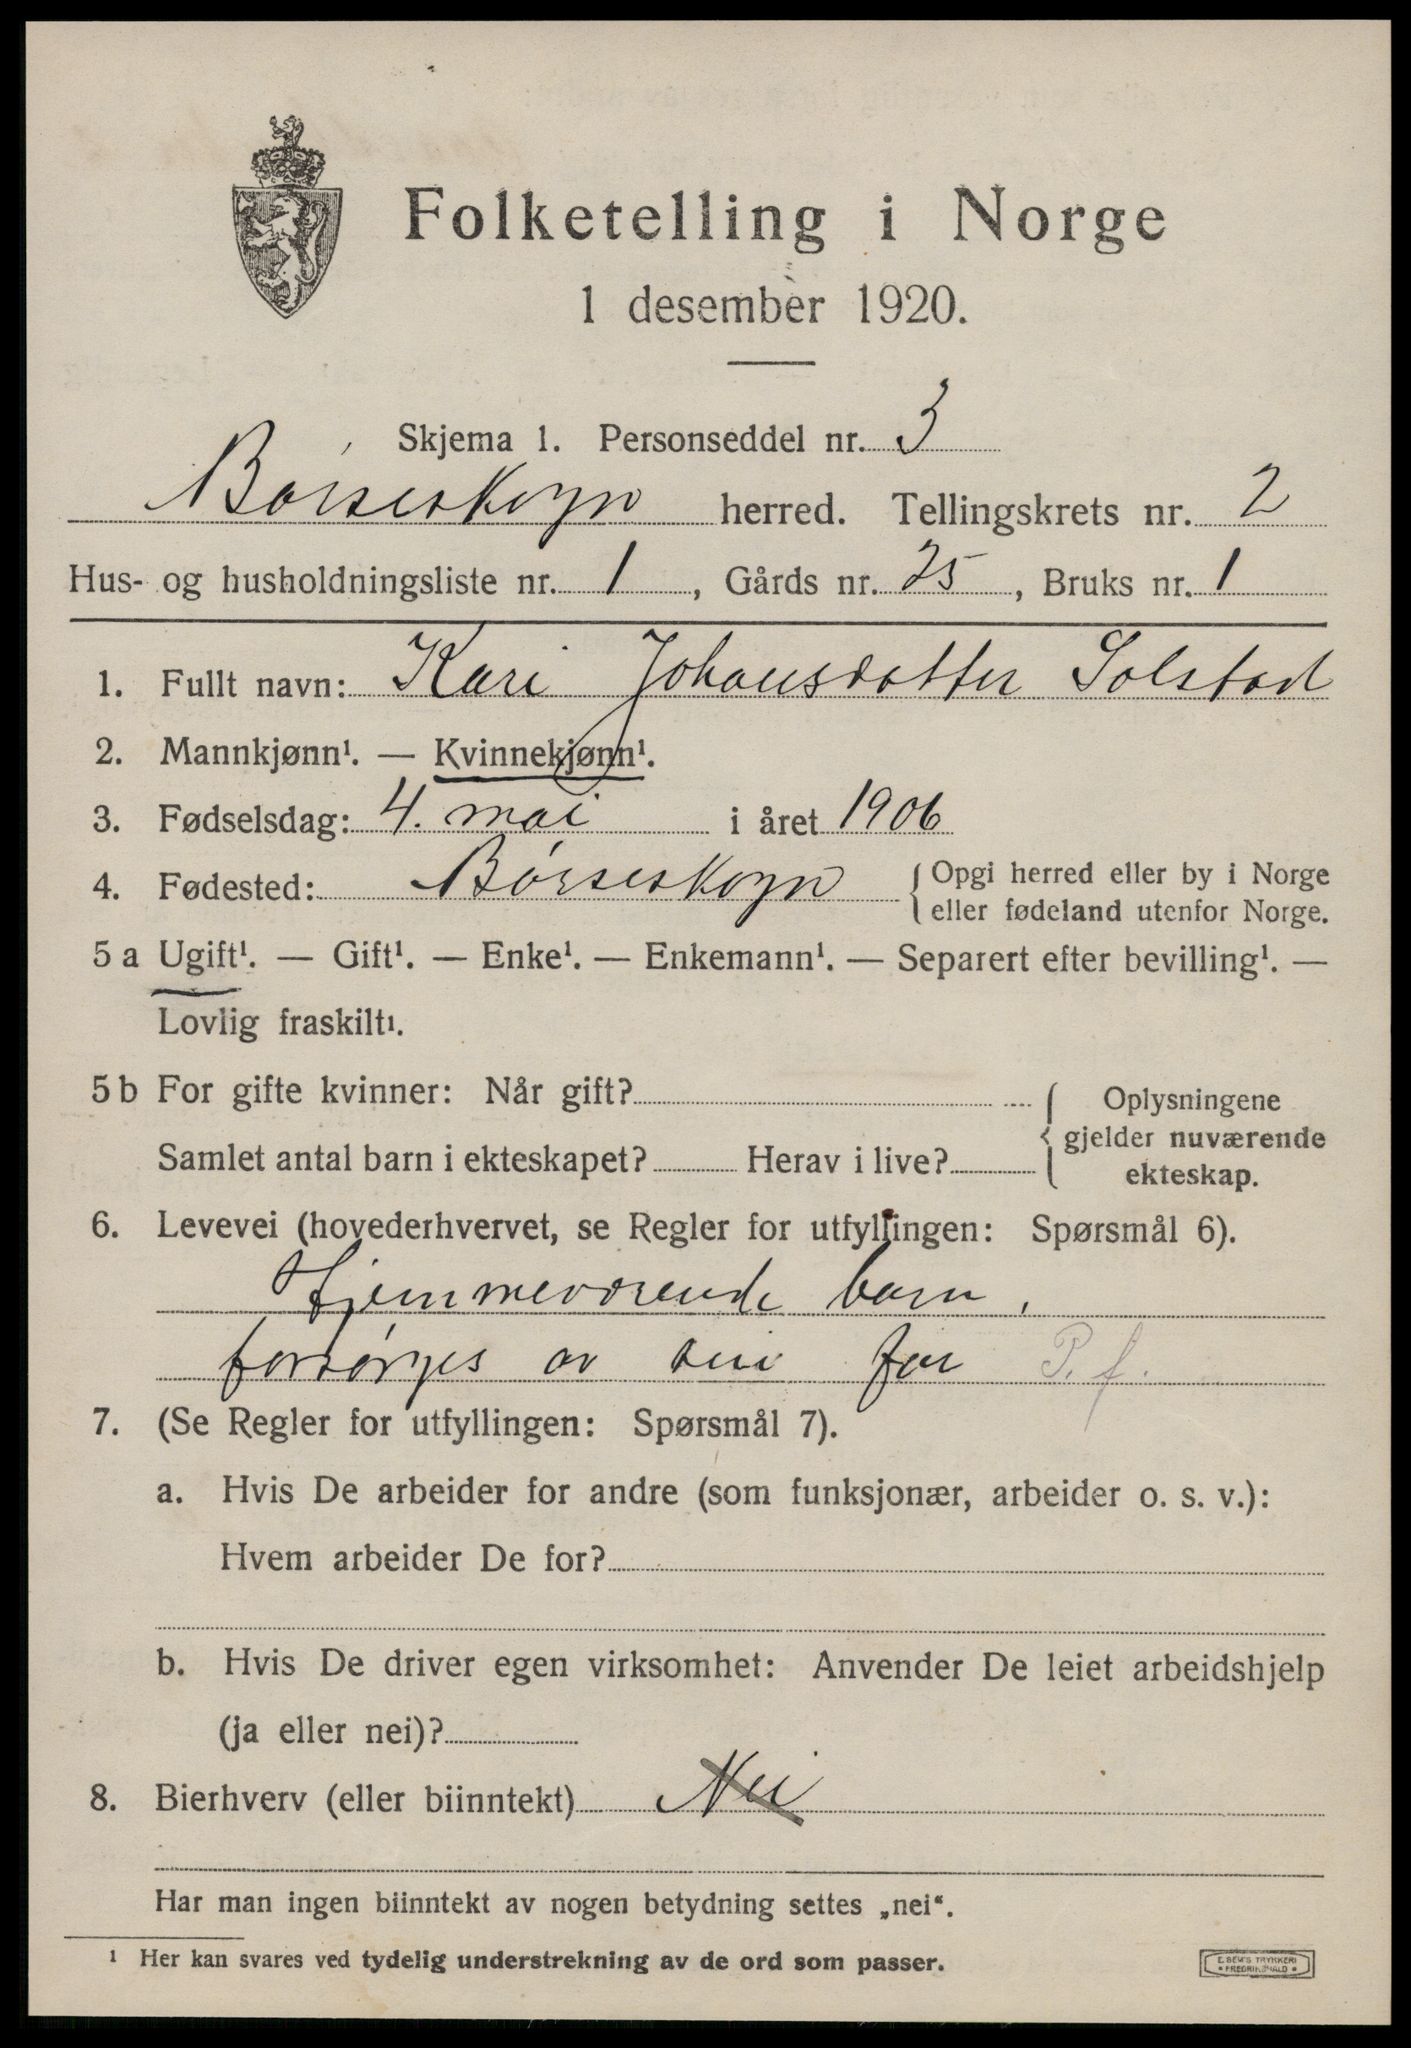 Folketelling i Norge
1 desember 1920.
Skjema 1. Personseddel nr. 3
Börseskogn herred. Tellingskrets nr. 2
Hus- og husholdningsliste nr. 1, Gårds nr. 25, Bruks nr. 1
1. Fullt navn: Kari Johansdatter Solstad
2. Mannkjønn¹. — Kvinnekjønn¹.
3. Fødselsdag: 4. mai i året 1906
4. Fødested: Börseskogn { Opgi herred eller by i Norge
eller fødeland utenfor Norge.
5 a Ugift¹. — Gift¹. — Enke¹. — Enkemann¹. — Separert efter bevilling¹. —
Lovlig fraskilt¹.
5 b For gifte kvinner: Når gift? { Oplysningene
gjelder nuværende
Samlet antal barn i ekteskapet? Herav i live? ekteskap.
6. Levevei (hovederhvervet, se Regler for utfyllingen: Spørsmål 6).
Hjemmeværende barn,
forsörges av sin far P. f.
7. (Se Regler for utfyllingen: Spørsmål 7).
a. Hvis De arbeider for andre (som funksjonær, arbeider o. s. v.):
Hvem arbeider De for?
b. Hvis De driver egen virksomhet: Anvender De leiet arbeidshjelp
(ja eller nei)?
8. Bierhverv (eller biinntekt) Nei
Har man ingen biinntekt av nogen betydning settes „nei“.
¹ Her kan svares ved tydelig understrekning av de ord som passer.
E. SEM'S TRYKKERI
FREDRIKSHALD